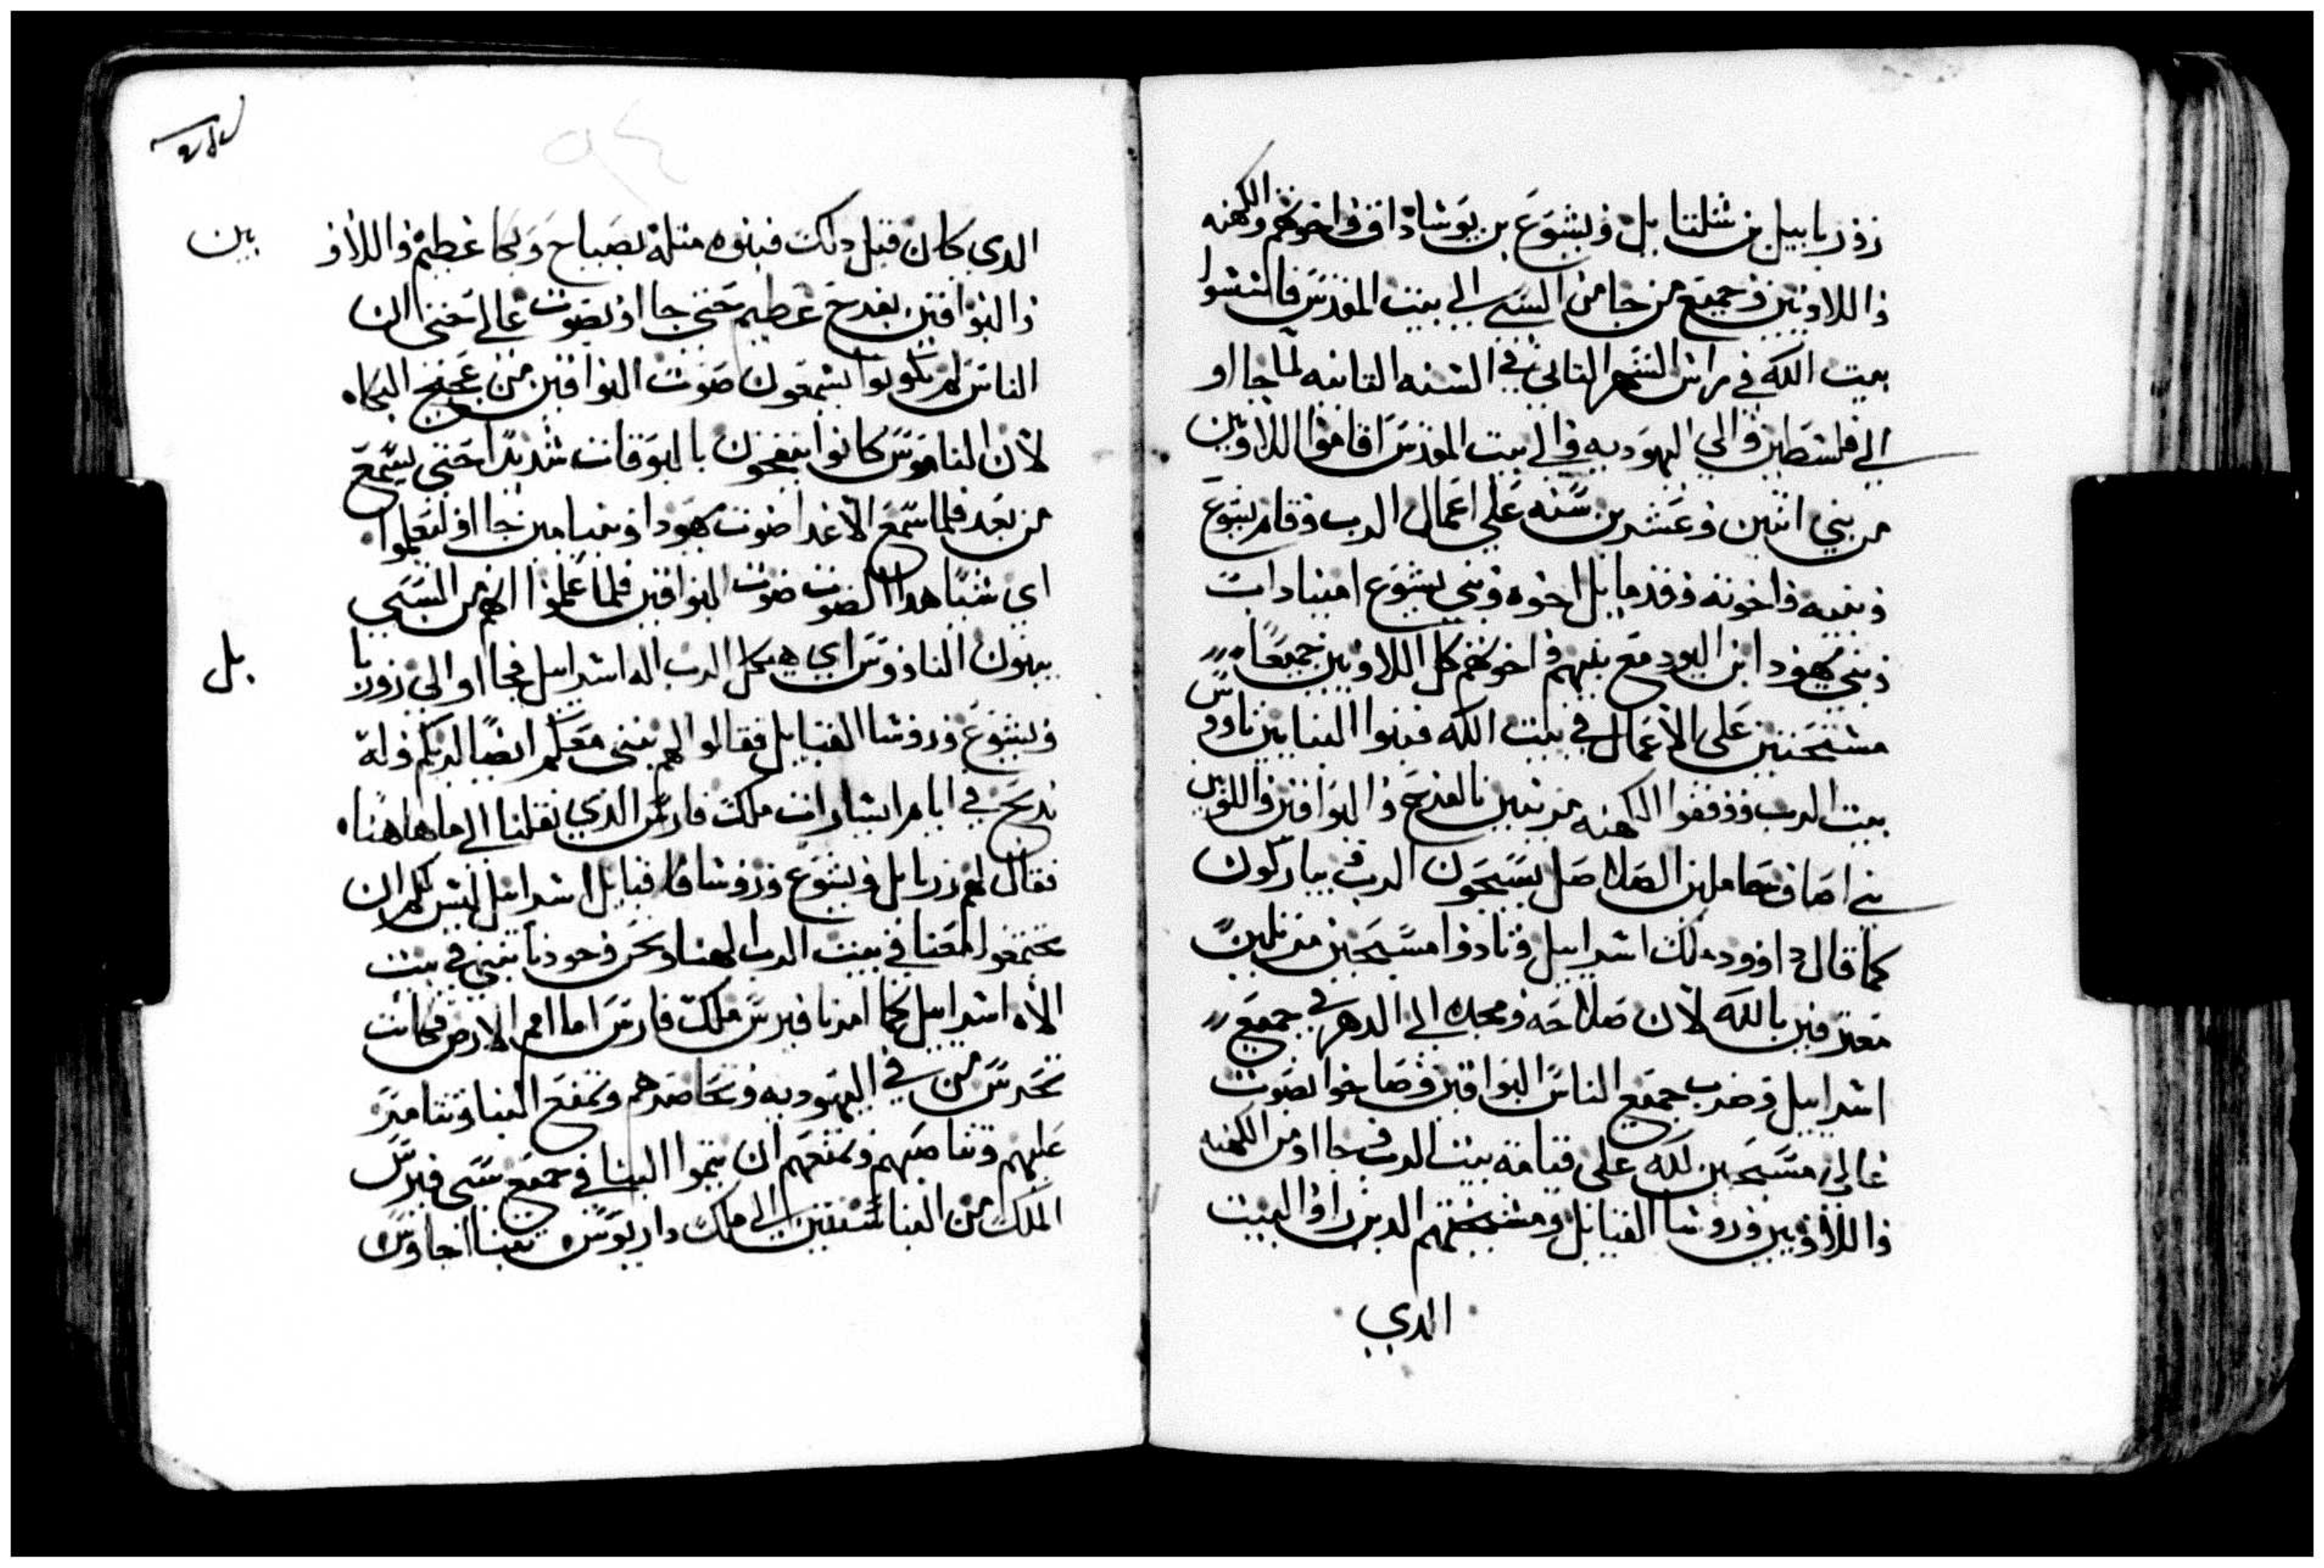 زوربابيل بن شلتنا بل ويشوع بن يوشاداق واخوتهم والكهنه
واللاويين وجميع من جا من السبي الي بيت المقدس فاسسوا
بيت الله في راس الشهر التاني في السنه التانيه لما جااو
الي فلسطين والي اليهوديه والي بيت المقدس اقاموا اللاويين
من بني اتنين وعشرين سنه علي اعمال الرب وقام يشوع
وبنيه واخوته وقدمايل اخوه وبني يشوع امينادات
وبني يهودا ابن اليود مع بنيهم واخوتهم كل اللاويين جميعًا
مستحتين علي الاعمال في بيت الله فبنوا البنايين ناووس
بيت الرب ووقفوا الكهنه مزينين بالفرح والبواقين واللاويين
بني اصاف حاملين الصلاصل يسبحون الرب ويباركون
كما قال داوود ملك اسراييل ونادوا مسبحين مرتلين
معترفين بالله لان صلاحه ومجده الي الدهر في جميع
اسراييل وضرب جميع الناس البواقين وصاخوا بصوت
عالي مسبحين لله علي قيامة بيت الرب وجااو من الكهنه
واللاويين وروسا القبايل ومشيختهم الدين راوا البيت
الدي
الدي كان قبل دلك فبنوه متله بصياح وبكا عظيم واللاو
يين
والبواقين بفرح عظيم حتي جااو بصوت عالي حتي ان
الناس لم يكونوا يسمعون صوت البواقين من عجيج البكاه
لان الناموس كانوا ينفخون بالبوقات شديدًا حتي يسمع
من بعد فلما سمع الاعدا صوت يهودا وبنيامين جااو ليعلموا
اي شيًا هدا الصوت صوت البواقين فلما علموا انهم من السبي
يبنون الناووس اي هيكل الرب اله اسراييل فجااو الي زوربا
بل
ويشوع وروسا القبايل فقالوا لهم نبني معكم ايضًا لربكم وله
ندبح في ايام اشارات ملك فارس الدي نقلنا الي ما هاهنا
فقال لهم زربابل ويشوع وروسا قبايل اسراييل ليس لكم ان
تجتمعوا معنا في بيت الرب الهنا ونحن وحودنا نبني في بيت
الاه اسراييل كما امرنا قيرس ملك فارس اما امم الارض فكانت
تحرس من في اليهوديه وتحاصرهم وتمنع البنا وتتامر
عليهم وتناصبهم وتمنعهم ان يتموا البنا في جميع سني قيرس
الملك من البنا سنتين الي ملك داريوس